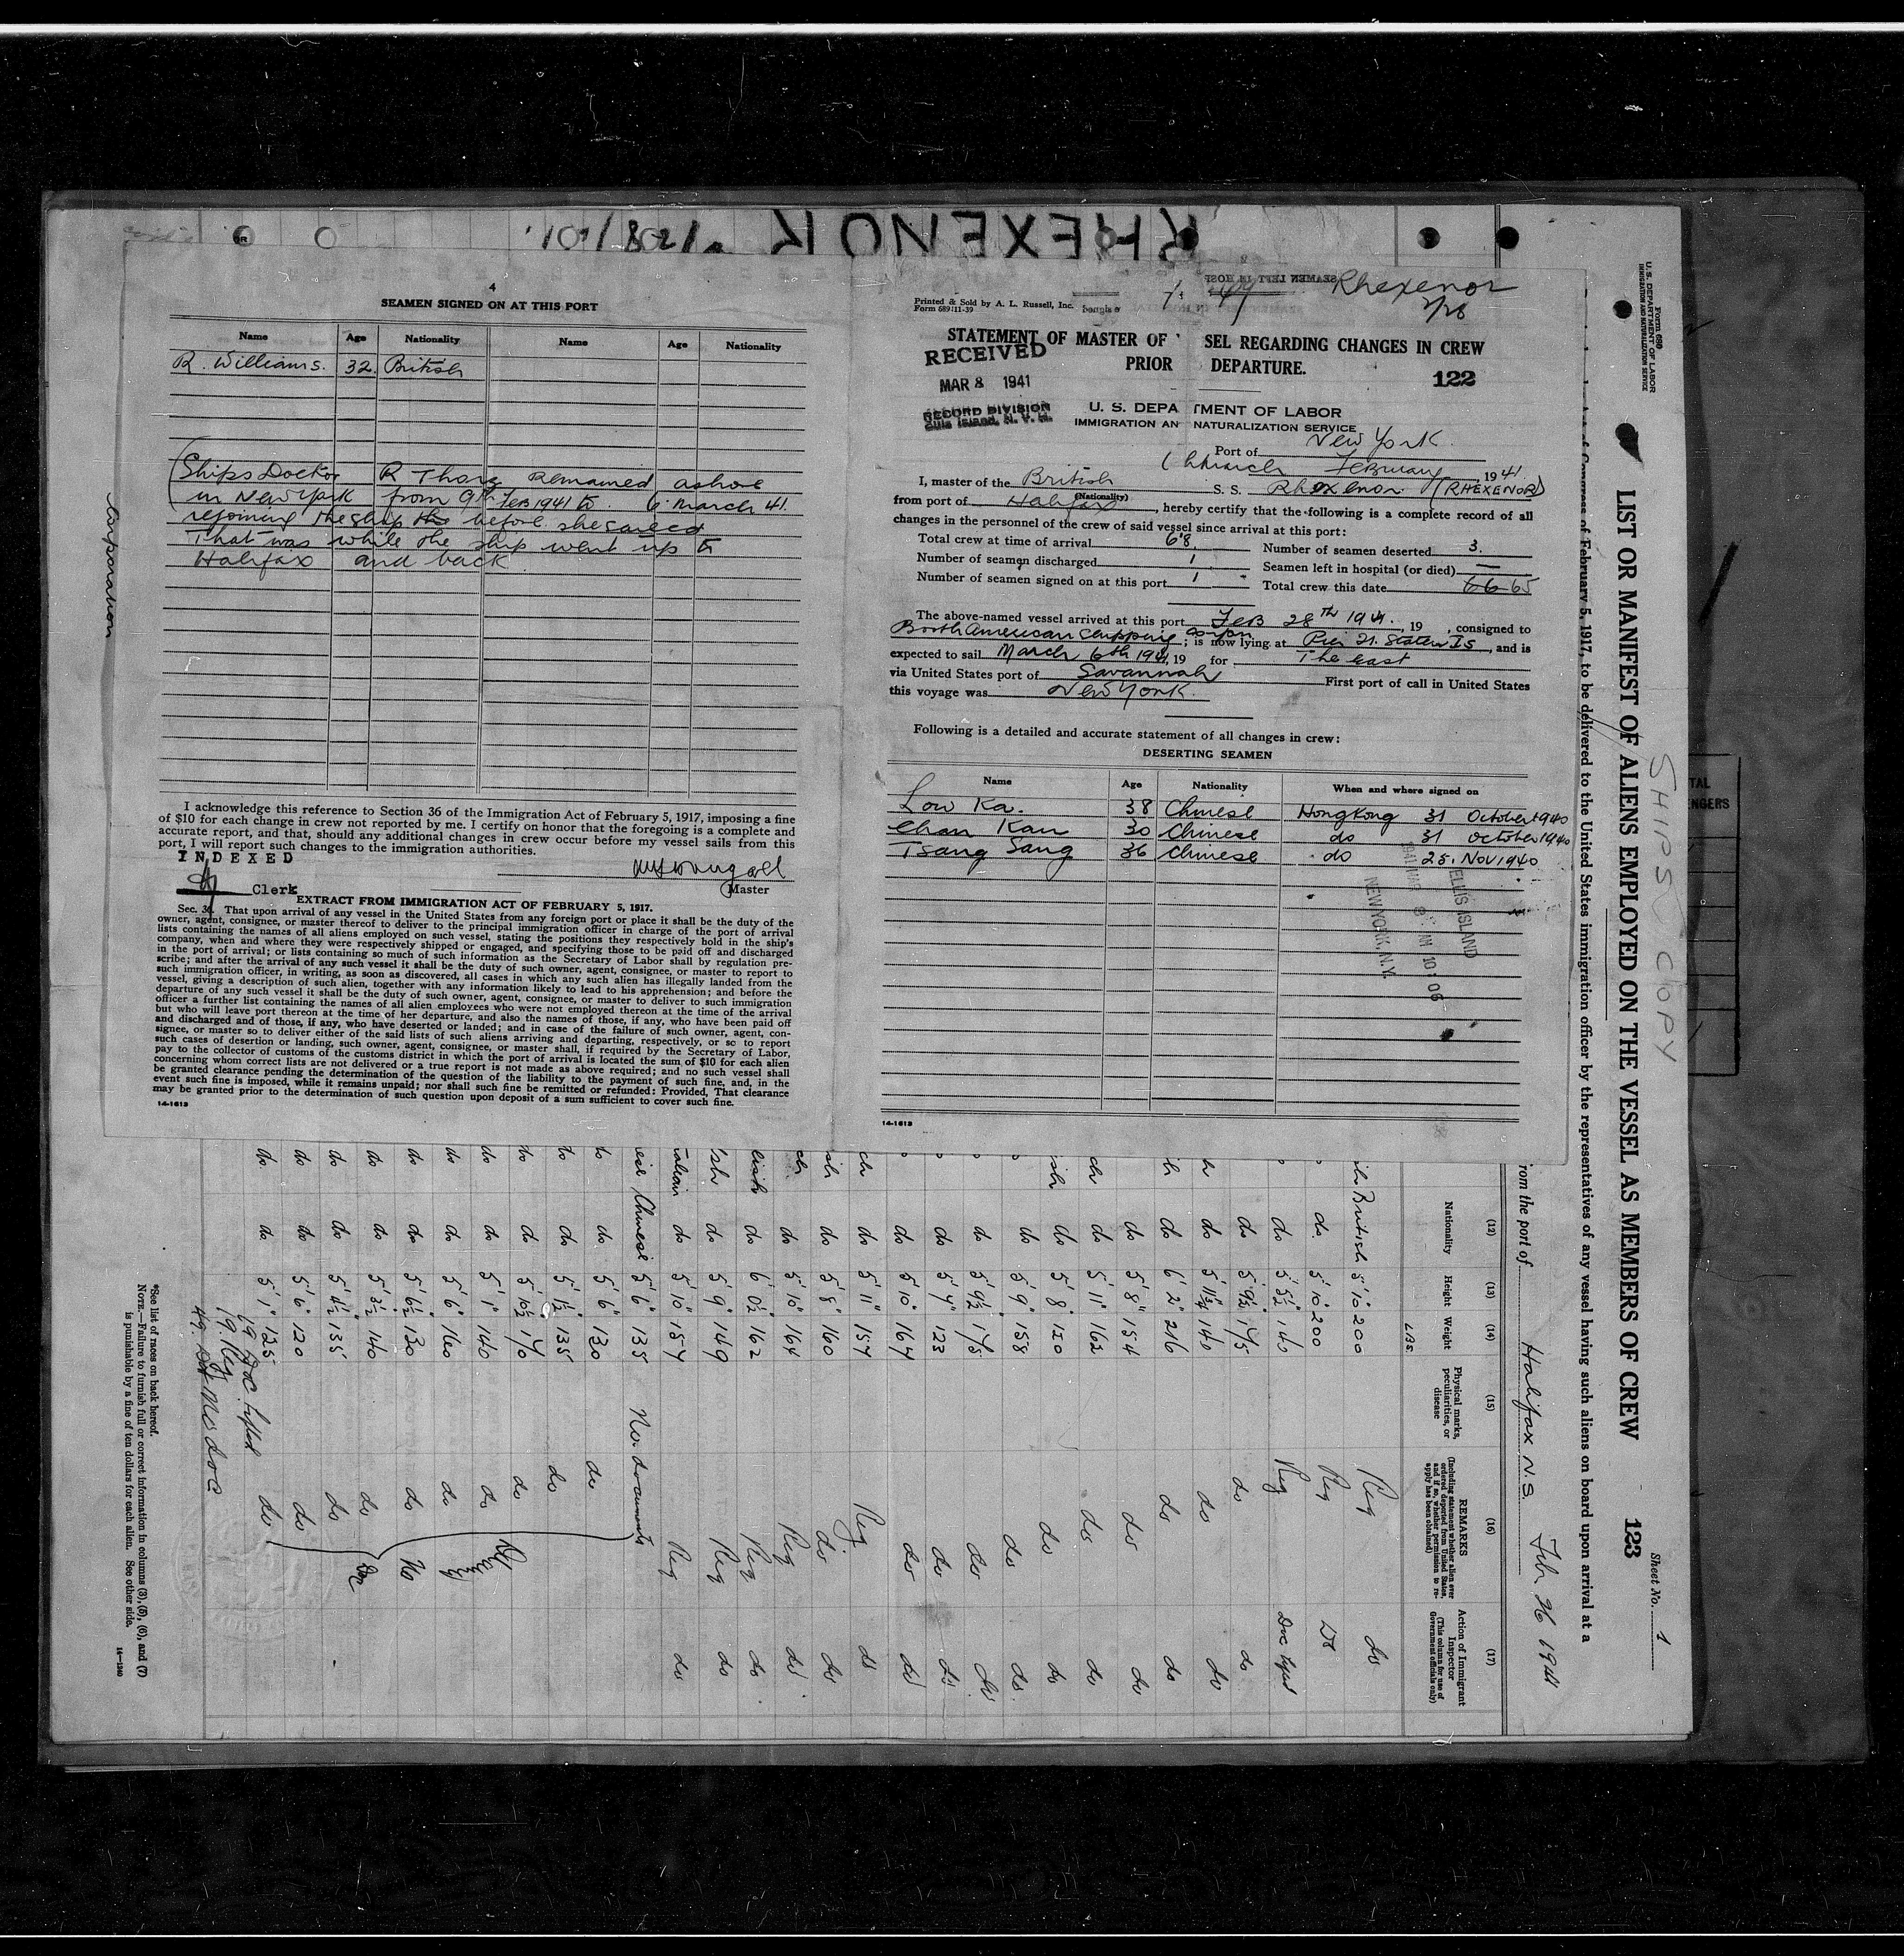 RHEXENOR
4
SEAMEN SIGNED ON AT THIS PORT
Name Age Nationality Name Age Nationality
R. Williams. 32. British
(Ships Doctor R Thorg Remained ashore
in New York from 9th Feb 1941 to 6 March 41.
rejoining the ship before she sailed
That was while the ship went up to
Halifax and back
Corporation
I acknowledge this reference to Section 36 of the Immigration Act of February 5, 1917, imposing a fine
of $10 for each change in crew not reported by me. I certify on honor that the foregoing is a complete and
accurate report, and that, should any additional changes in crew occur before my vessel sails from this
port, I will report such changes to the immigration authorities.
INDEXED
Clerk
Master
EXTRACT FROM IMMIGRATION ACT OF FEBRUARY 5, 1917.
Sec. 36. That upon arrival of any vessel in the United States from any foreign port or place it shall be the duty of the
owner, agent, consignee, or master thereof to deliver to the principal immigration officer in charge of the port of arrival
lists containing the names of all aliens employed on such vessel, stating the positions they respectively hold in the ship's
company, when and where they were respectively shipped or engaged, and specifying those to be paid off and discharged
in the port of arrival; or lists containing so much of such information as the Secretary of Labor shall by regulation pre-
scribe; and after the arrival of any such vessel it shall be the duty of such owner, agent, consignee, or master to report to
such immigration officer, in writing, as soon as discovered, all cases in which any such alien has illegally landed from the
vessel, giving a description of such alien, together with any information likely to lead to his apprehension; and before the
departure of any such vessel it shall be the duty of such owner, agent, consignee, or master to deliver to such immigration
officer a further list containing the names of all alien employees who were not employed thereon at the time of the arrival
but who will leave port thereon at the time of her departure, and also the names of those, if any, who have been paid off
and discharged and of those, if any, who have deserted or landed; and in case of the failure of such owner, agent, con-
signee, or master so to deliver either of the said lists of such aliens arriving and departing, respectively, or so to report
such cases of desertion or landing, such owner, agent, consignee, or master shall, if required by the Secretary of Labor,
pay to the collector of customs of the customs district in which the port of arrival is located the sum of $10 for each alien
concerning whom correct lists are not delivered or a true report is not made as above required; and no such vessel shall
be granted clearance pending the determination of the question of the liability to the payment of such fine, and, in the
event such fine is imposed, while it remains unpaid; nor shall such fine be remitted or refunded: Provided, That clearance
may be granted prior to the determination of such question upon deposit of a sum sufficient to cover such fine.
14-1613
Rhexenor
2/28
Printed & Sold by A. L. Russell, Inc.
Form 689 11-39
STATEMENT OF MASTER OF SEL REGARDING CHANGES IN CREW
PRIOR DEPARTURE.
RECEIVED
MAR 8 1941
RECORD DIVISION
Ellis Island, N. Y. H.
122
U. S. DEPA TMENT OF LABOR
IMMIGRATION AN NATURALIZATION SERVICE
Port of New York
March February, 1941
I, master of the British S. S. Rhexenor (RHEXENOR)
(Nationality)
from port of Halifax, hereby certify that the following is a complete record of all
changes in the personnel of the crew of said vessel since arrival at this port:
Total crew at time of arrival 68 Number of seamen deserted 3.
Number of seamen discharged 1 Seamen left in hospital (or died) —
Number of seamen signed on at this port 1 Total crew this date 66 65
The above-named vessel arrived at this port Feb 28th 1941., 19 , consigned to
Booth American Shipping Corpn; is now lying at Pier 21. Staten Is, and is
expected to sail March 6th 1941, 19 for The east
via United States port of Savannah First port of call in United States
this voyage was New York.
Following is a detailed and accurate statement of all changes in crew:
DESERTING SEAMEN
Name Age Nationality When and where signed on
Low Ka. 38 Chinese HongKong 31 October 1940
Chan Kau 30 Chinese do 31 October 1940
Tsang Sang 36 Chinese do 25. Nov 1940
ELLIS ISLAND
1941 MAR 8 AM 10:06
NEW YORK, N.Y.
14-1613
Form 680
U. S. DEPARTMENT OF LABOR
IMMIGRATION AND NATURALIZATION SERVICE
SHIPS COPY
Sheet No. 1
LIST OR MANIFEST OF ALIENS EMPLOYED ON THE VESSEL AS MEMBERS OF CREW 123
of February 5, 1917, to be delivered to the United States immigration officer by the representatives of any vessel having such aliens on board upon arrival at a
from the port of Halifax N.S. Feb 26 1941
(12) (13) (14) (15) (16) (17)
Nationality
Height
Weight
LBS.
Physical marks, peculiarities, or disease
REMARKS
(Including statement whether alien ever ordered deported from United States, and if so, whether permission to re-apply has been obtained)
Action of Immigrant Inspector
(This column for use of Government officials only)
British 5' 10" 200 Reg do
do. 5' 10" 200 Reg
do 5' 5½" 140 Reg
do 5' 9½" 145 do do
do 5' 11¾" 140 do do
do 6' 2" 216 do do
do 5' 8" 154 do do
do 5' 11" 162 do do
do 5' 8" 150 do do
do 5' 9" 158 do do.
do 5' 9½" 145 do do
do 5' 4" 123 do do
do 5' 10" 164 do do
do 5' 11" 154 Reg do
do 5' 8" 160 do do
do 5' 10" 164 Reg do
do 6' 0½" 162 Reg do
do 5' 9" 149 Reg do
do 5' 10" 154 Reg do
Chinese 5' 6" 135 No. documents
do 5' 6" 130 do
do 5' 1½" 135 do
do 5' 10½" 140 do
do 5' 1" 140 do
do 5' 6" 160 do
do 5' 6½" 130 do
do 5' 3½" 140 do
do 5' 4½" 135 do
do 5' 6" 120 do
do 5' 1" 125 do
*See list of races on back hereof.
NOTE.—Failure to furnish full or correct information in columns (3), (5), (6), and (7)
is punishable by a fine of ten dollars for each alien. See other side.
14-1240